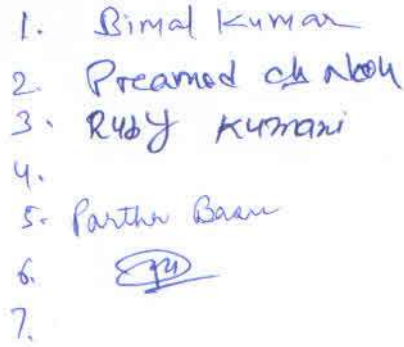 1. Bimal Kumar
2. Preamod ch
3. Ruby Kumari
4.
5. Partha Basu
6.
7.